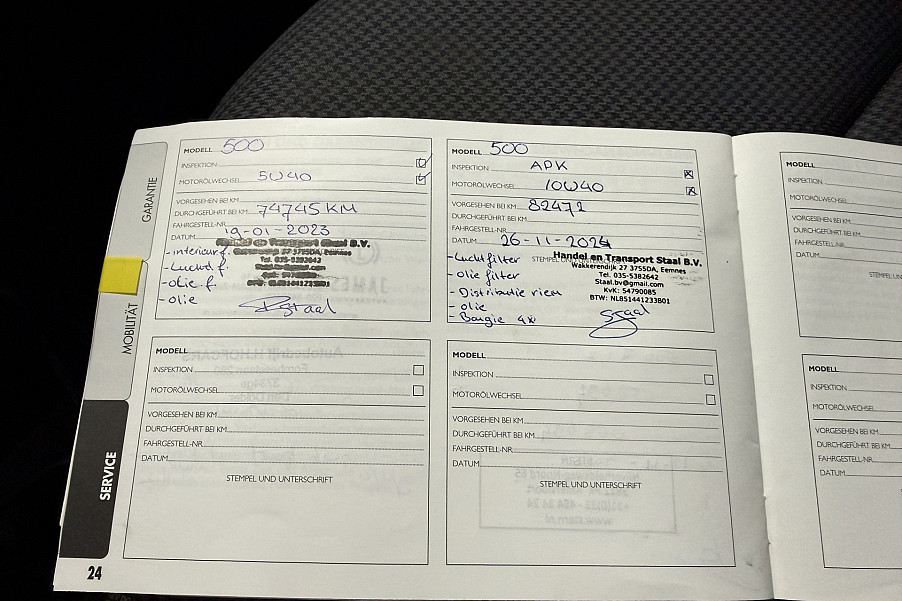 GARANTIE
MOBILITÄT
SERVICE
24
MODELL 500
INSPEKTION
MOTORÖLWECHSEL 5W40
VORGESEHEN BEI KM
DURCHGEFÜHRT BEI KM 74745 KM
FAHRGESTELL-NR.
DATUM 19-01-2023
Handel en Transport Staal B.V.
- interieur f.
Wakkerendijk 27 3755DA, Eemnes
- Lucht f.
Tel. 035-5382642
- olie f.
- olie
MODELL 500
INSPEKTION APK
MOTORÖLWECHSEL 10W40
VORGESEHEN BEI KM 82472
DURCHGEFÜHRT BEI KM
FAHRGESTELL-NR.
DATUM 26-11-2024
STEMPEL UND UNTERSCHRIFT
Handel en Transport Staal B.V.
Wakkerendijk 27 3755DA, Eemnes
Tel. 035-5382642
Staal.bv@gmail.com
KvK: 54790085
BTW: NL851441233B01
- Luchtfilter
- olie filter
- Distributie riem
- olie
- Bougie 4x
Staal
MODELL
INSPEKTION
MOTORÖLWECHSEL
VORGESEHEN BEI KM
DURCHGEFÜHRT BEI KM
FAHRGESTELL-NR.
DATUM
STEMPEL UND UNTERSCHRIFT
MODELL
INSPEKTION
MOTORÖLWECHSEL
VORGESEHEN BEI KM
DURCHGEFÜHRT BEI KM
FAHRGESTELL-NR.
DATUM
STEMPEL UND UNTERSCHRIFT
MODELL
INSPEKTION
MOTORÖLWECHSEL
VORGESEHEN BEI KM
DURCHGEFÜHRT BEI KM
FAHRGESTELL-NR.
DATUM
STEMPEL UND
MODELL
INSPEKTION
MOTORÖLWECHSEL
VORGESEHEN BEI KM
DURCHGEFÜHRT BEI KM
FAHRGESTELL-NR.
DATUM